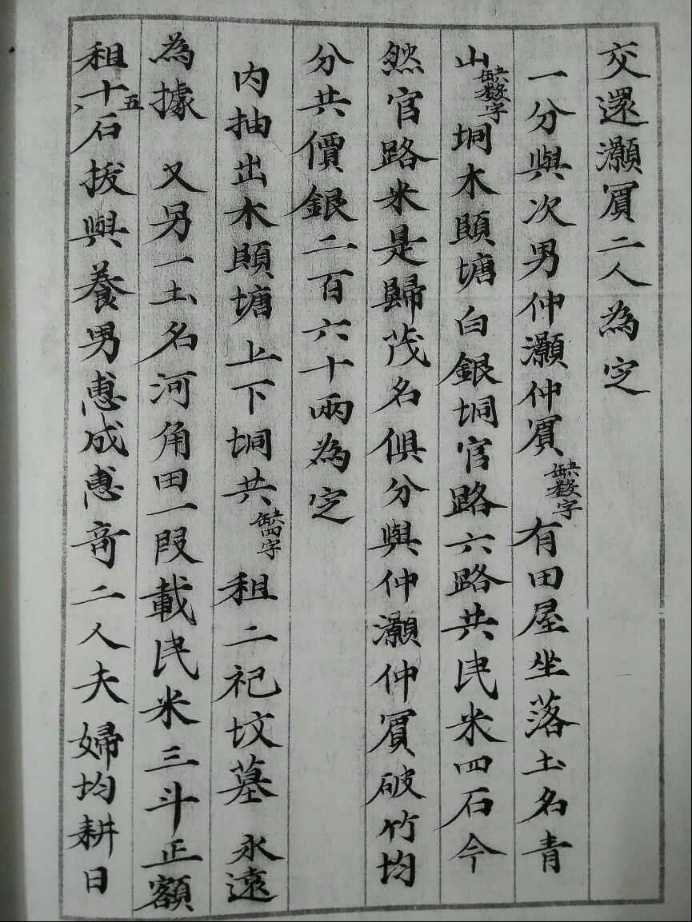 交還灝賔二人為定
一分與次男仲灝仲賔缺数字有田屋坐落土名青
山缺数字垌木頣塘白銀垌官路六路共民米四石今
然官路米是歸茂名俱分與仲灝仲賔破竹均
分共價銀二百六十兩為定
内抽出木頣塘上下垌共字租二祀坟墓 永遠
為據 又另一土名河角田一段載民米三斗正額
租十五石拨與養男惠成惠奇二人夫婦均耕日